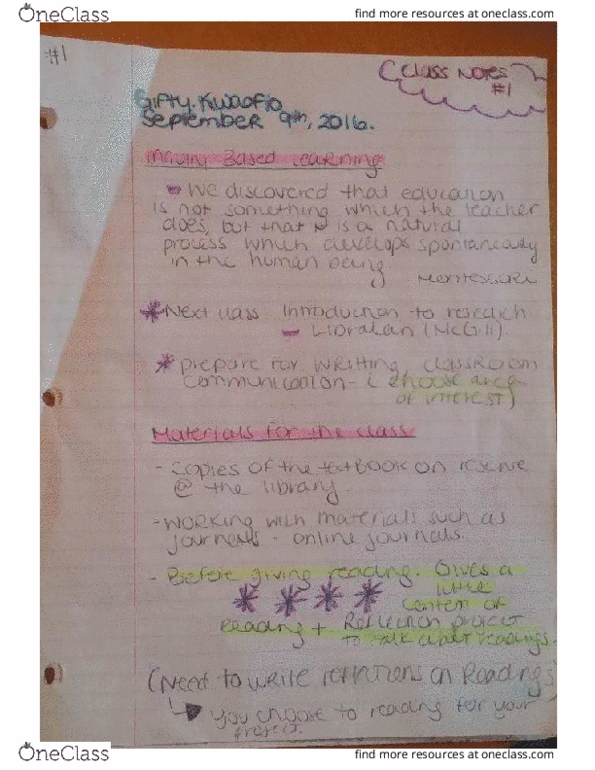 OneClass
find more resources at oneclass.com
#1
Class Notes
#1
Gifty. Kwaofio
September 9th, 2016.
Inquiry Based Learning
- We discovered that education
is not something which the teacher
does, but that it is a natural
process which develops spontaneously
in the human being
- Montessori
* Next class: Introduction to research
- Libralan (McGill).
* prepare for writting, classroom
communication - ( choose area
of interest)
Materials for the class
- Copies of the textbook on reserve
@ the library.
- Working with materials such as
journals - online journals.
- Before giving reading. Gives a
little
* * * *
context of
Reading + Reflection project
to talk about readings.
(Need to write reflections on Readings)
You choose to reading for your
project.
OneClass
find more resources at oneclass.com